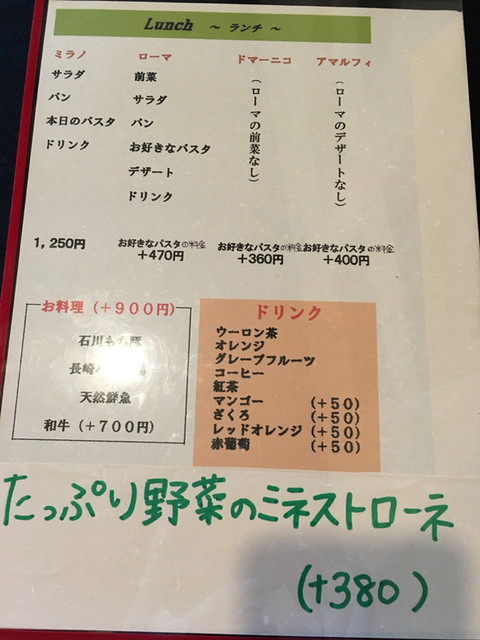 Lunch ～ ランチ ～
ミラノ
サラダ
パン
本日のパスタ
ドリンク
1,250円
ローマ
前菜
サラダ
パン
お好きなパスタ
デザート
ドリンク
お好きなパスタの料金
+470円
ドマーニコ
(ローマの前菜なし)
お好きなパスタの料金
+360円
アマルフィ
(ローマのデザートなし)
お好きなパスタの料金
+400円
お料理(+900円)
石川もち豚
長崎
天然鮮魚
和牛(+700円)
ドリンク
ウーロン茶
オレンジ
グレープフルーツ
コーヒー
紅茶
マンゴー (+50)
ざくろ (+50)
レッドオレンジ (+50)
赤葡萄 (+50)
たっぷり野菜のミネストローネ
(+380)